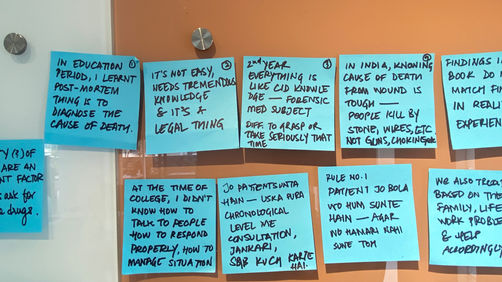 IN EDUCATION ①
PERIOD, I LEARNT
POST-MORTEM
THING IS TO
DIAGNOSE THE
CAUSE OF DEATH.
②
IT'S NOT EASY,
NEEDS TREMENDOUS
KNOWLEDGE
& IT'S A
LEGAL THING
2nd YEAR ③
EVERYTHING IS
LIKE CID KNOWLE
DGE — FORENSIC
MED SUBJECT
DIFF. TO GRASP OR
TAKE SERIOUSLY THAT
TIME
④
IN INDIA, KNOWING
CAUSE OF DEATH
FROM WOUND IS
TOUGH —
PEOPLE KILL BY
STONE, WIRES, ETC.
NOT GUNS, CHOKING
FINDINGS I
BOOK DO
MATCH FI
IN REAL
EXPERIEN
TY (?) OF
ARE AN
NT FACTOR
ask for
drugs.
AT THE TIME OF
COLLEGE, I DIDN'T
KNOW HOW TO
TALK TO PEOPLE
HOW TO RESPOND
PROPERLY, HOW TO
MANAGE SITUATION
JO PATIENT SUNTA
HAIN — USKA PURA
CHRONOLOGICAL
LEVEL ME
CONSULTATION,
JANKARI,
SAB KUCH KARTE
HAI.
RULE NO. 1
PATIENT JO BOLA
VO HUM SUNTE
HAIN — AGAR
NO HAMARI NAHI
SUNE TOH
WE ALSO TREAT
BASED ON THE
FAMILY, LIFE
WORK PROBLE
& HELP
ACCORDINGLY